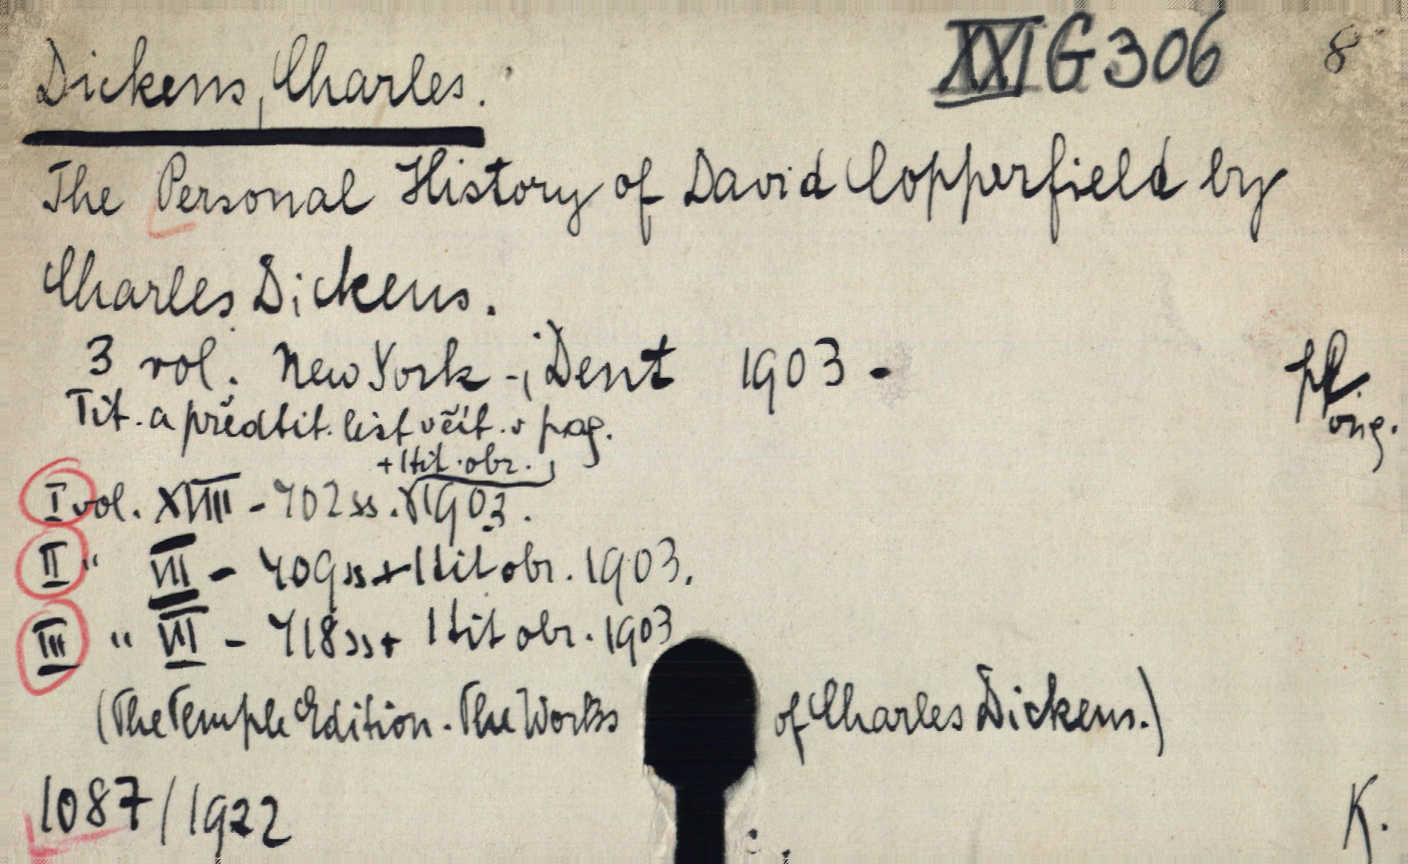 XXI G 306 8
Dickens, Charles.
The Personal History of David Copperfield by
Charles Dickens.
3 vol. New York -, Dent 1903 -
Tit. a předtit. list včít. v pag.
+ 1 tit. obr.,
I vol. XVIII - 402 ss. 1903.
II " VII - 409 ss + 1 tit obr. 1903.
III " VII - 418 ss + 1 tit obr. 1903
(The Temple Edition. The Works of Charles Dickens.)
1087/1922
K.